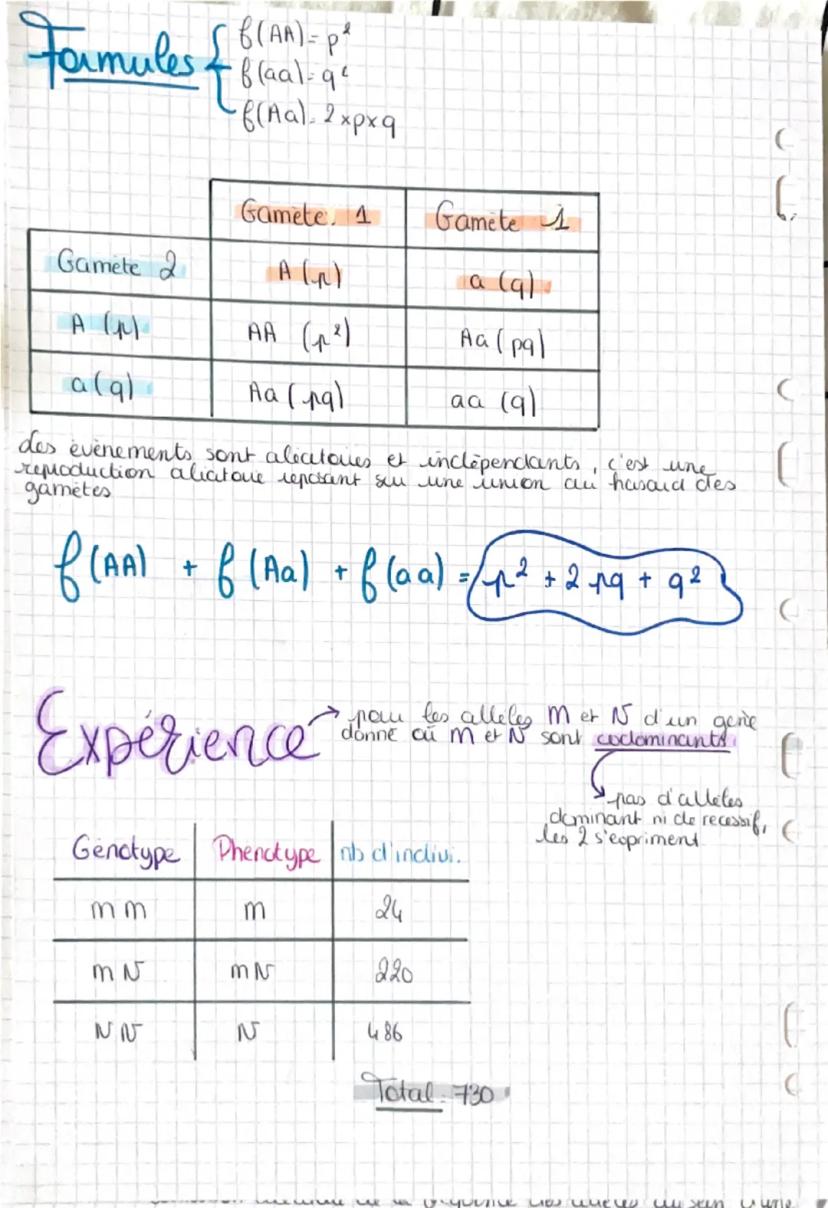 Formules
f(AA) = p²
f(aa) = q²
f(Aa) = 2 × p × q
Gamète 1 Gamète 1
Gamète 2 A (p) a (q)
A (p) AA (p²) Aa (pq)
a (q) Aa (pq) aa (q)
des évènements sont aléatoires et indépendants, c'est une
reproduction aléatoire reposant sur une union au hasard des
gamètes
f(AA) + f(Aa) + f(aa) = p² + 2pq + q²
Expérience → pour les allèles M et N d'un gène
donné où M et N sont codominants
pas d'allèles
dominant ni de recessif,
les 2 s'expriment
Génotype Phénotype nb d'indivi.
MM M 24
MN MN 220
NN N 486
Total : 730